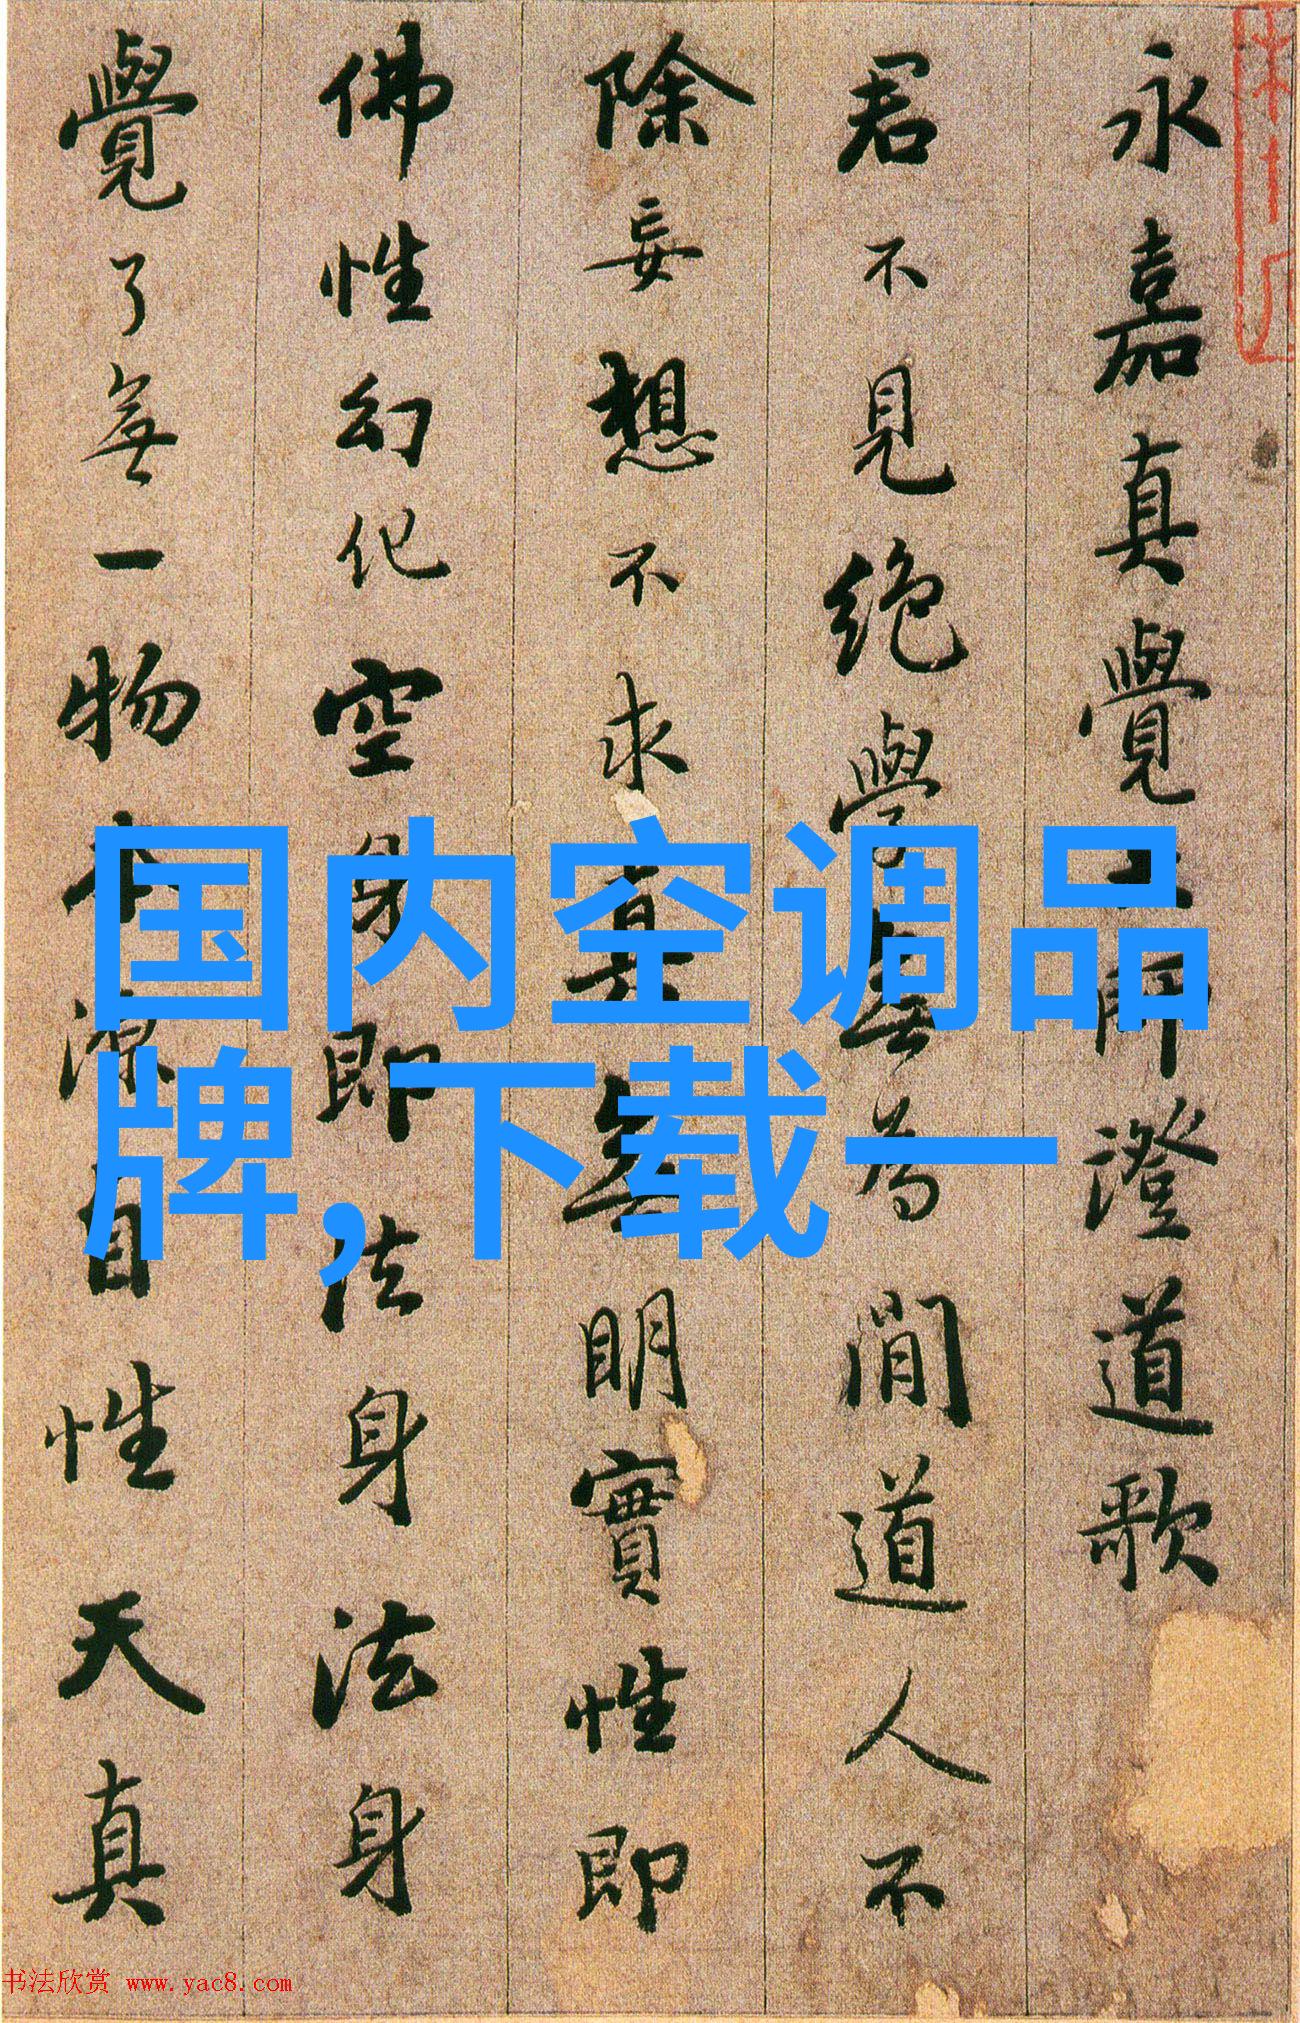 永嘉真覺大師證道歌
君不見絕學無為閒道人不
除妄想不求真無明實性即
佛性幻化空身即法身法身
覺了無一物本源自性天真
国内空调品
牌,下载一
书法欣赏 www.yac8.com